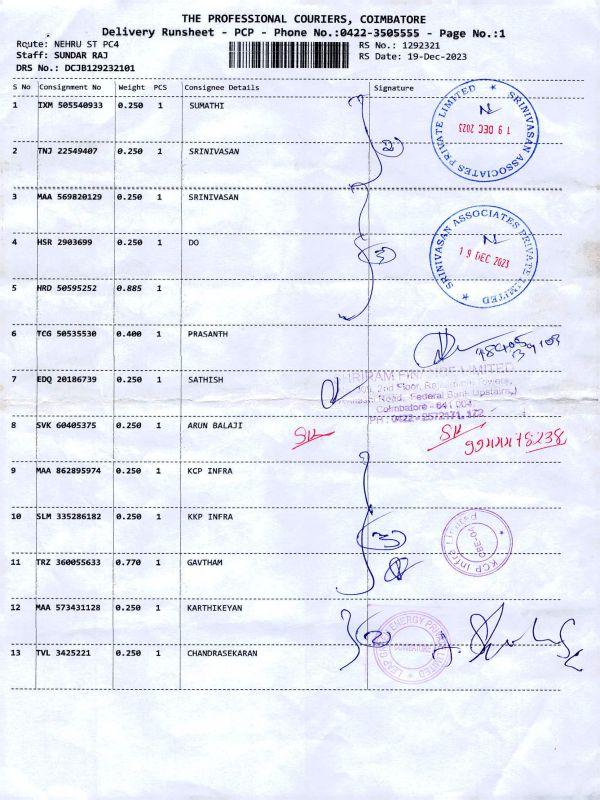 THE PROFESSIONAL COURIERS, COIMBATORE
Delivery Runsheet - PCP - Phone No.:0422-3505555 - Page No.:1
Route: NEHRU ST PC4 RS No.: 1292321
Staff: SUNDAR RAJ RS Date: 19-Dec-2023
DRS No.: DCJB129232101
S No Consignment No Weight PCS Consignee Details Signature
1 IXM 505540933 0.250 1 SUMATHI
SRINIVASAN ASSOCIATES PRIVATE LIMITED
19 DEC 2023
2 TNJ 22549407 0.250 1 SRINIVASAN
2
3 MAA 569820129 0.250 1 SRINIVASAN
SRINIVASAN ASSOCIATES PRIVATE LIMITED
4 HSR 2903699 0.250 1 DO
3
19 DEC 2023
5 HRD 50595252 0.885 1
6 TCG 50535530 0.400 1 PRASANTH
SHRIRAM FINANCE LIMITED
7 EDQ 20186739 0.250 1 SATHISH
2nd Floor, Towers,
Road, Federal Bank Upstairs,
Coimbatore - 641 004
8 SVK 60405375 0.250 1 ARUN BALAJI
9944478238
9 MAA 862895974 0.250 1 KCP INFRA
10 SLM 335286182 0.250 1 KKP INFRA
3
KCP Infra Limited
CBE-04
11 TRZ 360055633 0.770 1 GAVTHAM
12 MAA 573431128 0.250 1 KARTHIKEYAN
2
ENERGY PRIVATE LIMITED
13 TVL 3425221 0.250 1 CHANDRASEKARAN